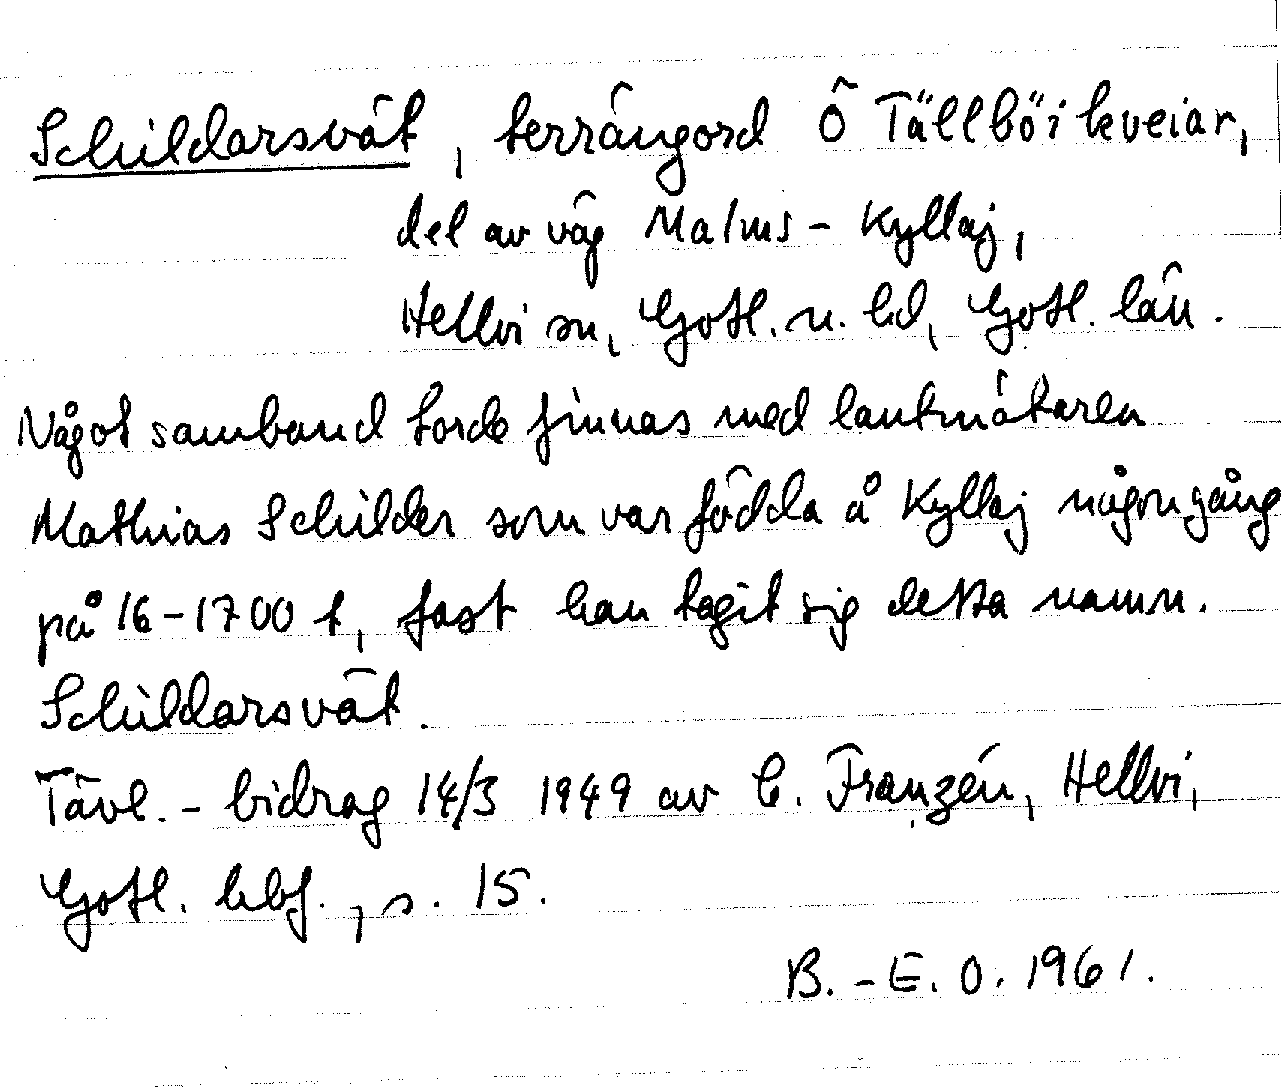 Schildarsvät, terrängord Ö Tällböi kveiar,
del av väg Malms - Kyllaj,
Hellvi sn, Gotl. n. hd, Gotl. län.
Något samband torde finnas med lantmätaren
Mathias Schilder som var födda å Kyllaj någon gång
på 16-1700 t, fast han tagit sig detta namn.
Schildarsvät.
Tävl. - bidrag 14/3 1949 av C. Franzén, Hellvi,
Gotl. hbf., s. 15.
B. - E. O. 1961.